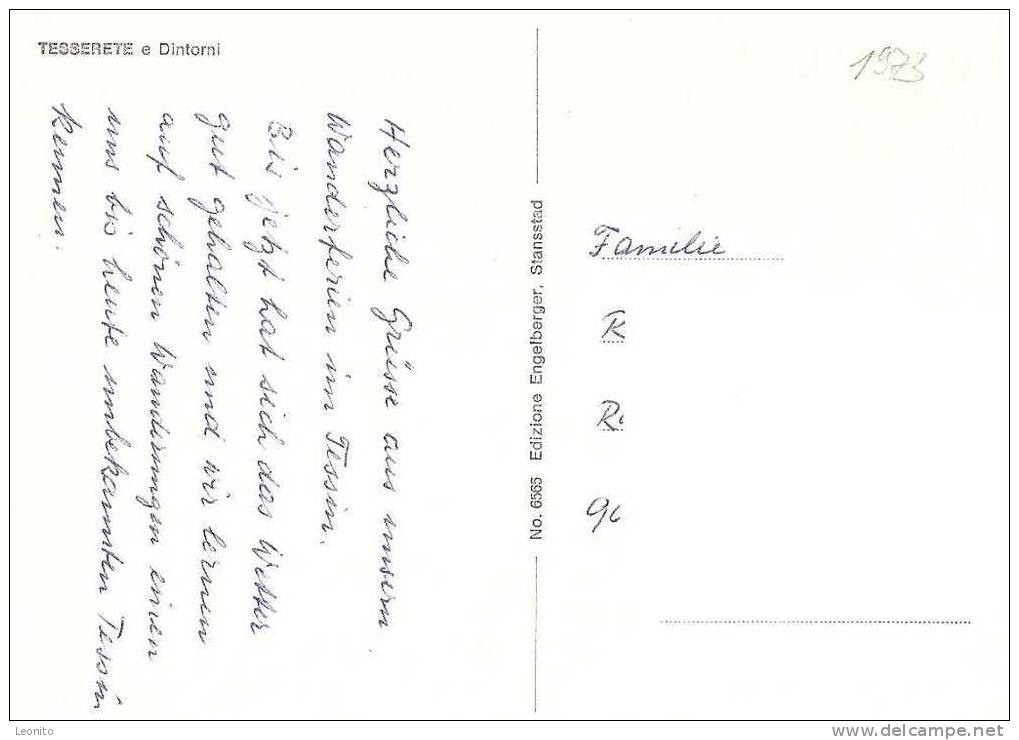 TESSERETE e Dintorni
1973
Herzliche Grüsse aus unsern
Wanderferien im Tessin.
Bis jetzt hat sich das Wetter
gut gehalten und wir lernen
auf schönen Wanderungen einen
uns bis heute unbekannten Tessin
kennen.
No. 6565 Edizione Engelberger, Stansstad
Familie
R
R
90
Leonito
www.delcampe.net